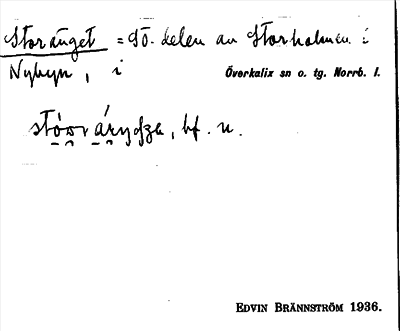 Storänget = SO. delen av Storholmen i
Nybyn, i Överkalix sn o. tg. Norrb. l.
bf. n.
EDVIN BRÄNNSTRÖM 1936.